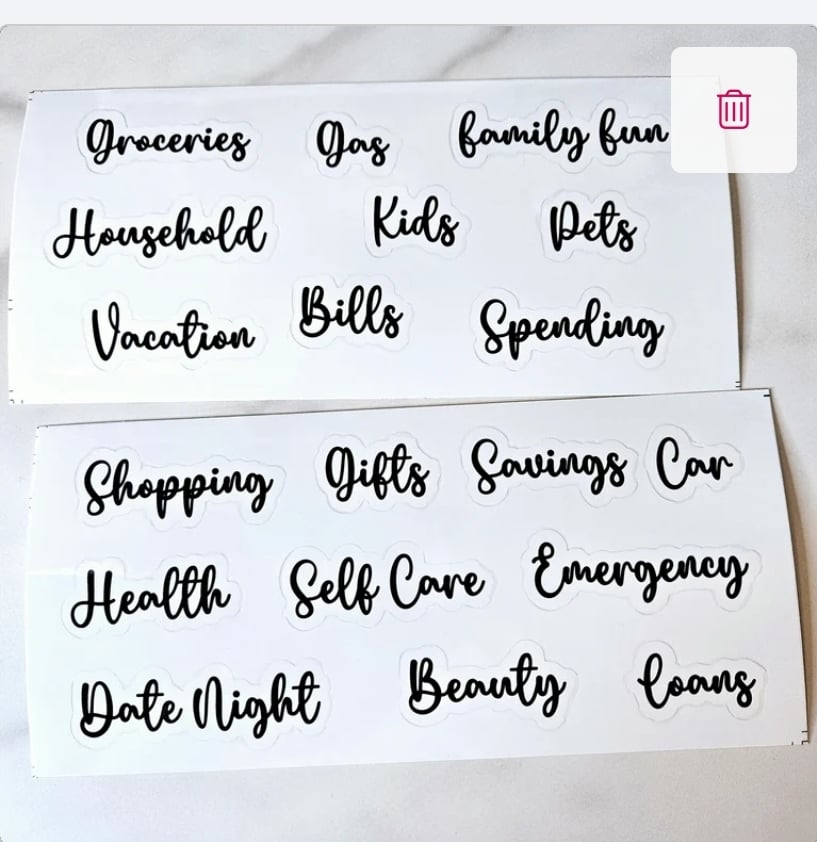 groceries gas family fun
Household Kids Pets
Vacation Bills Spending
Shopping Gifts Savings Car
Health Self Care Emergency
Date Night Beauty Loans